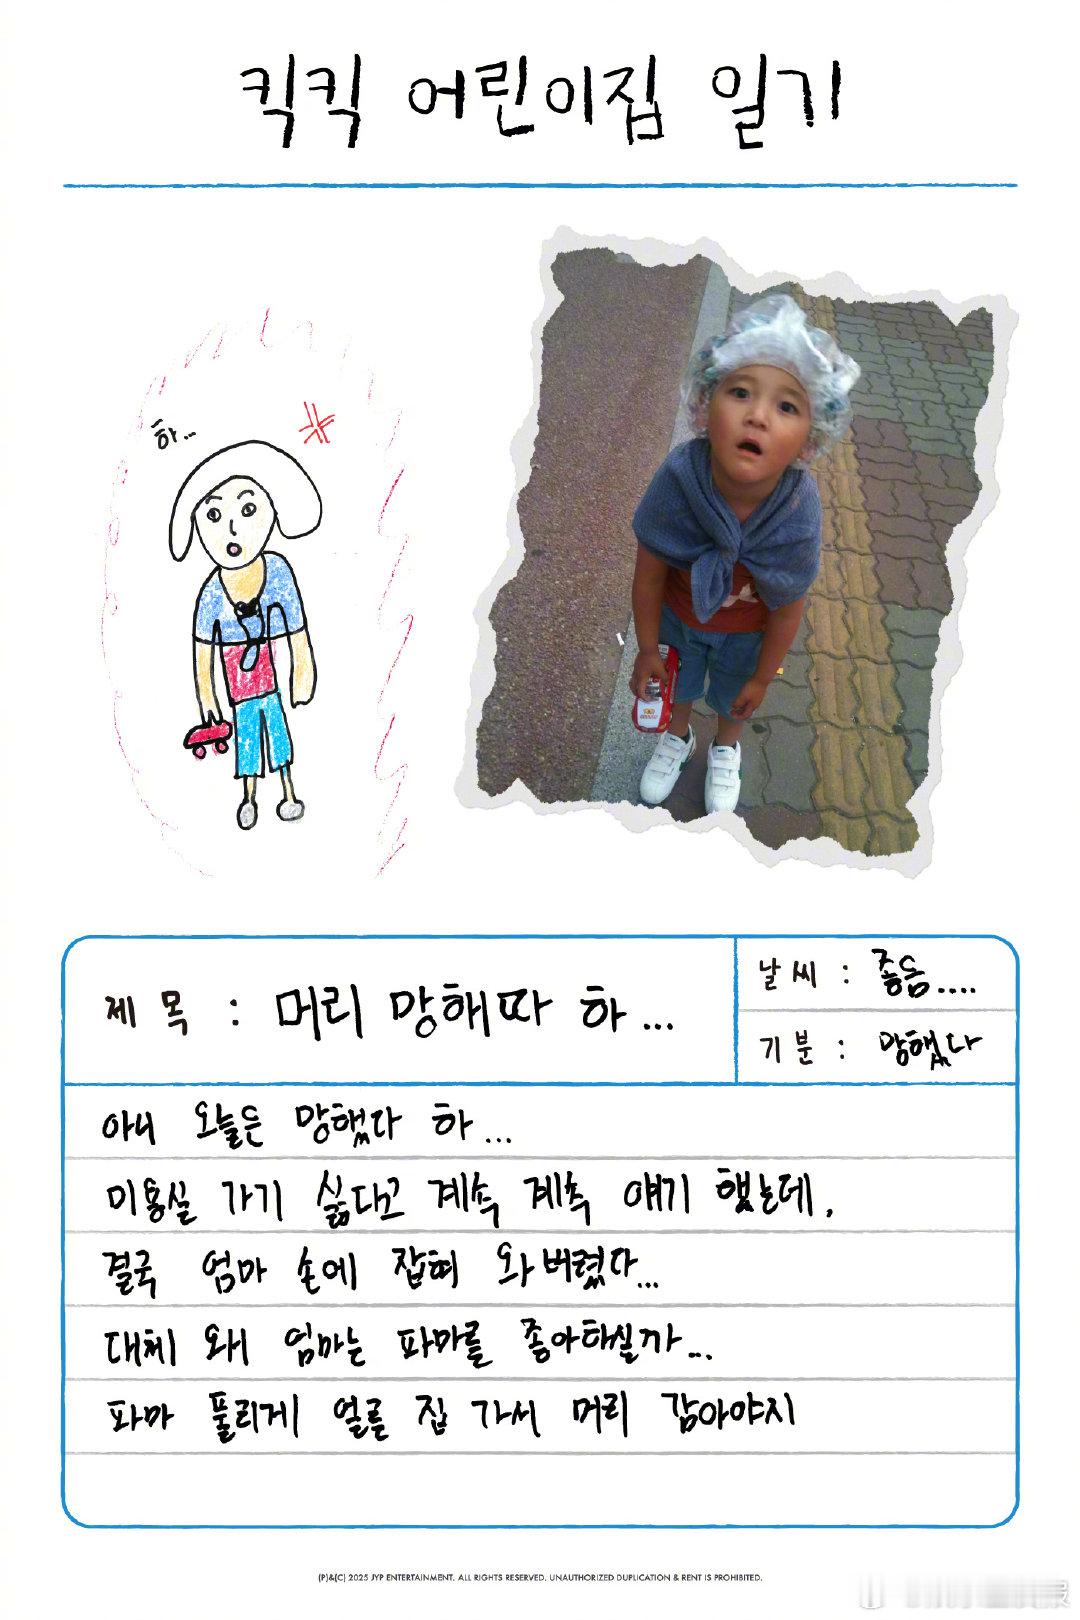 킥킥 어린이집 일기
하...
제목 : 머리 망해따 하...
날씨 : 좋음....
기분 : 망했다
아니 오늘은 망했다 하...
미용실 가기 싫다고 계속 계속 얘기 했는데,
결국 엄마 손에 잡혀 와버렸다...
대체 왜 엄마는 파마를 좋아하실까...
파마 풀리게 얼른 집 가서 머리 감아야지
(P)&(C) 2025 JYP ENTERTAINMENT. ALL RIGHTS RESERVED. UNAUTHORIZED DUPLICATION & RENT IS PROHIBITED.